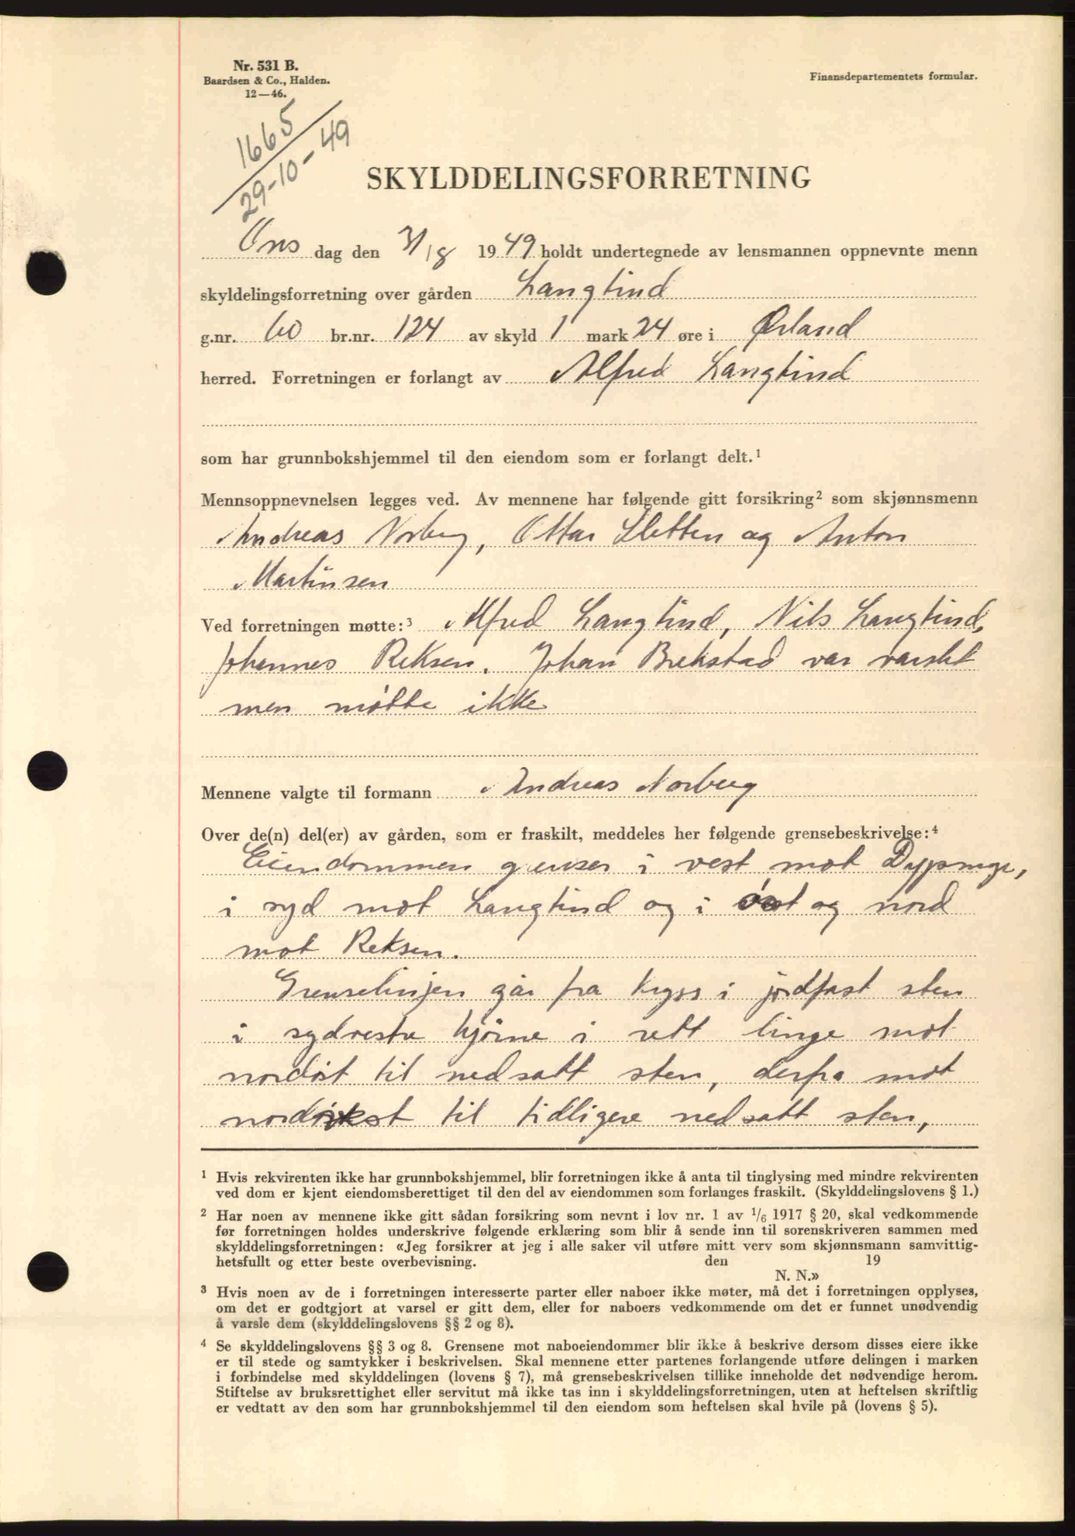 Nr. 531 B.
Baardsen & Co., Halden.
12—46.
Finansdepartementets formular.
1665
29-10-49
SKYLDDELINGSFORRETNING
Ons dag den 31/8 1949 holdt undertegnede av lensmannen oppnevnte menn
skyldelingsforretning over gården Langlind
g.nr. 60 br.nr. 124 av skyld 1 mark 24 øre i Ørland
herred. Forretningen er forlangt av Alfred Langlind
som har grunnbokshjemmel til den eiendom som er forlangt delt.¹
Mennsoppnevnelsen legges ved. Av mennene har følgende gitt forsikring² som skjønnsmenn
Andreas Norberg, Ottar Sletten og Anton
Martinsen
Ved forretningen møtte:³ Alfred Langlind, Nils Langlind,
Johannes Reksen. Johan Brekstad var varslet
men møtte ikke
Mennene valgte til formann Andreas Norberg
Over de(n) del(er) av gården, som er fraskilt, meddeles her følgende grensebeskrivelse:⁴
Eiendommen grenser i vest mot
i syd mot Langlind og i øst og nord
mot Reksen.
Grenselinjen går fra kryss i jordfast sten
i sydvestre hjørne i rett linge mot
nordøst til nedsatt sten, derfra mot
til tidligere nedsatt sten,
¹ Hvis rekvirenten ikke har grunnbokshjemmel, blir forretningen ikke å anta til tinglysing med mindre rekvirenten
ved dom er kjent eiendomsberettiget til den del av eiendommen som forlanges fraskilt. (Skylddelingslovens § 1.)
² Har noen av mennene ikke gitt sådan forsikring som nevnt i lov nr. 1 av 1/6 1917 § 20, skal vedkommende
før forretningen holdes underskrive følgende erklæring som blir å sende inn til sorenskriveren sammen med
skylddelingsforretningen: «Jeg forsikrer at jeg i alle saker vil utføre mitt verv som skjønnsmann samvittig-
hetsfullt og etter beste overbevisning. den 19
N. N.»
³ Hvis noen av de i forretningen interesserte parter eller naboer ikke møter, må det i forretningen opplyses,
om det er godtgjort at varsel er gitt dem, eller for naboers vedkommende om det er funnet unødvendig
å varsle dem (skylddelingslovens §§ 2 og 8).
⁴ Se skylddelingslovens §§ 3 og 8. Grensene mot naboeiendommer blir ikke å beskrive dersom disses eiere ikke
er til stede og samtykker i beskrivelsen. Skal mennene etter partenes forlangende utføre delingen i marken
i forbindelse med skylddelingen (lovens § 7), må grensebeskrivelsen tillike inneholde det nødvendige herom.
Stiftelse av bruksrettighet eller servitut må ikke tas inn i skylddelingsforretningen, uten at heftelsen skriftlig
er vedtatt av den som har grunnbokshjemmel til den eiendom som heftelsen skal hvile på (lovens § 5).